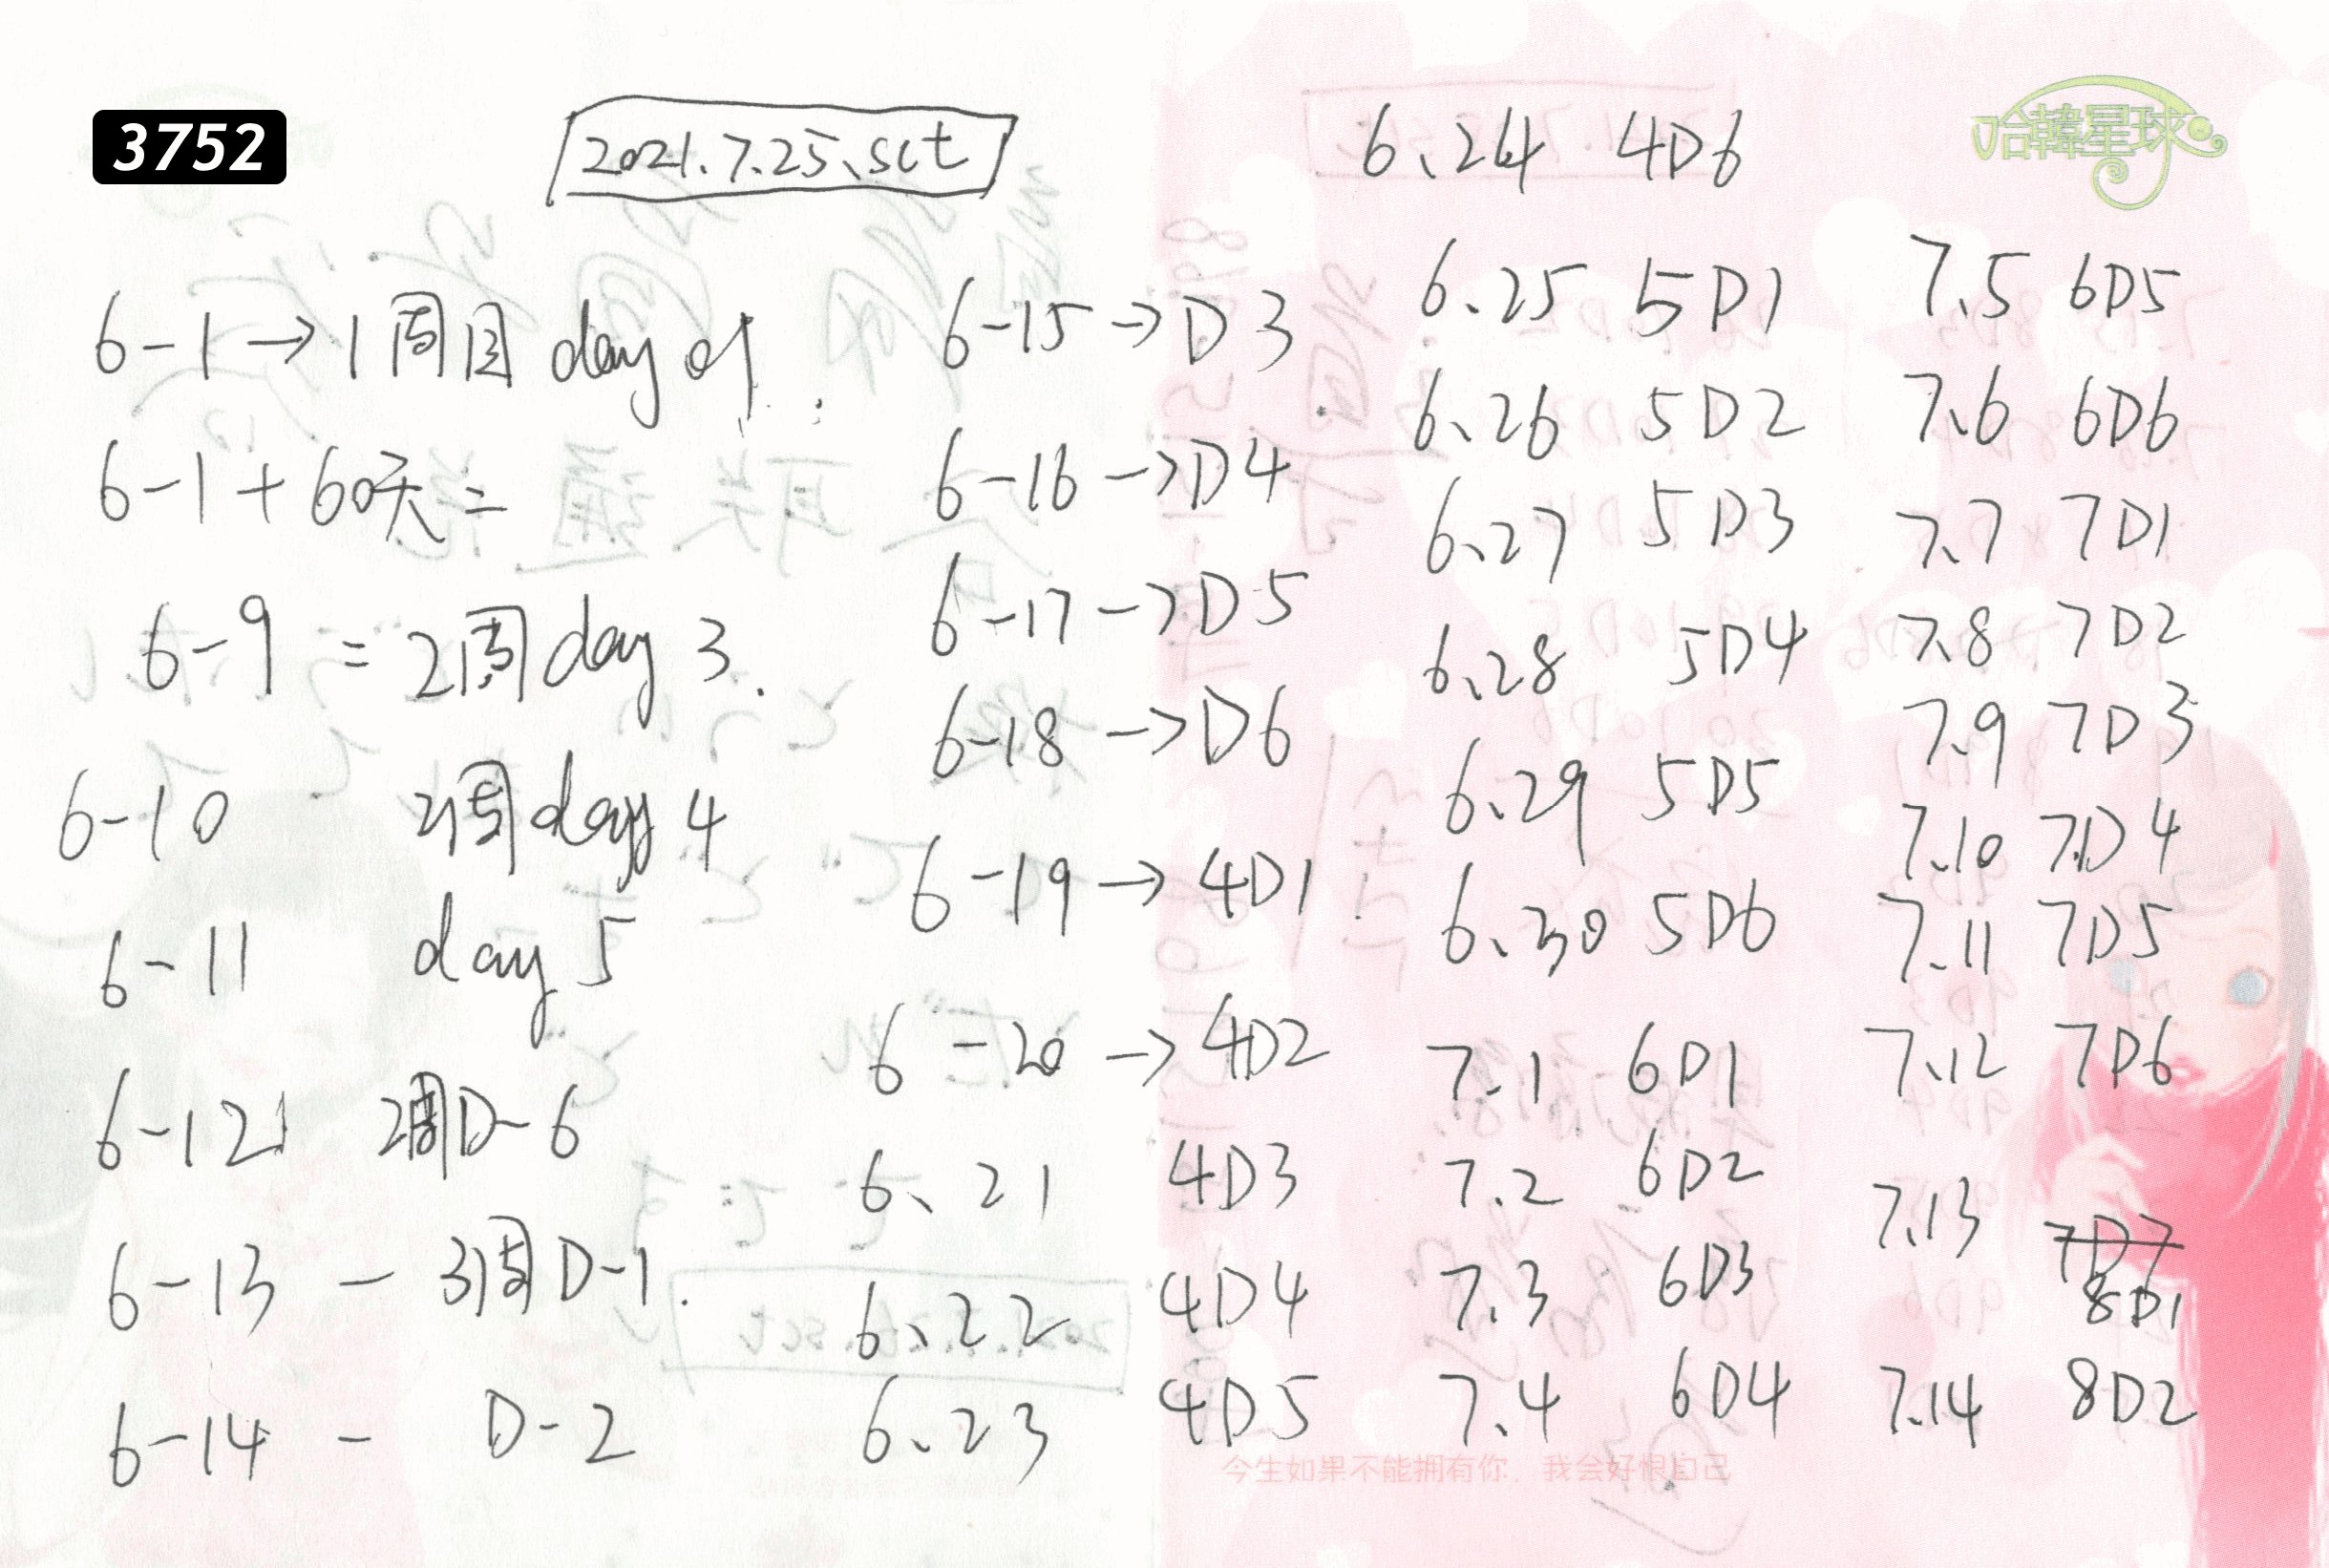 3752
2021.7.25、sct
哈韓星球
6-1→1周目 day 01.
6-1+60天=
6-9 = 2周day 3.
6-10 2周day 4
6-11 day 5
6-12 2周D-6
6-13 - 3周D-1.
6-14 - D-2
6-15→D3
6-16→D4
6-17→D5
6-18→D6
6-19→4D1
6-20→4D2
6、21 4D3
6、22 4D4
6、23 4D5
6、24 4D6
6、25 5D1
6、26 5D2
6、27 5D3
6、28 5D4
6、29 5D5
6、30 5D6
7、1 6D1
7、2 6D2
7、3 6D3
7、4 6D4
7、5 6D5
7、6 6D6
7、7 7D1
7、8 7D2
7、9 7D3
7、10 7D4
7、11 7D5
7、12 7D6
7、13 7D7
8D1
7、14 8D2
今生如果不能拥有你，我会好恨自己